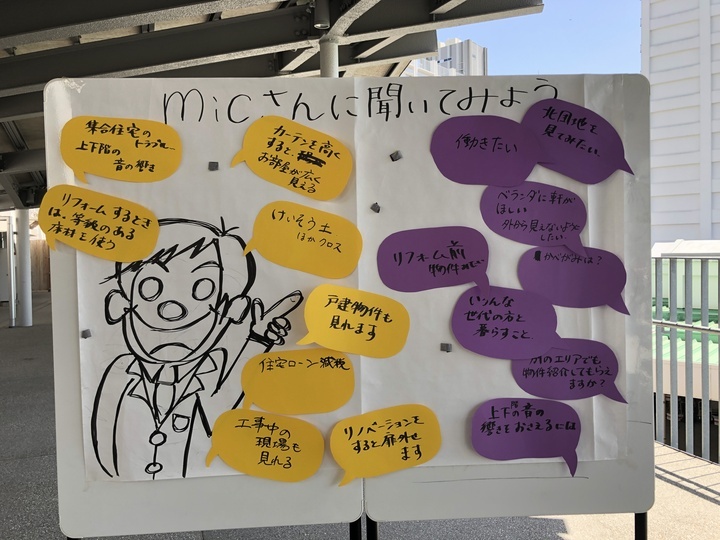 micさんに聞いてみよう
集合住宅の
トラブル
上下階の
音の響き
リフォームするとき
は、等級のある
床材を使う
カーテンを高く
すると、
お部屋が広く
見える
けいそう土
ほか クロス
戸建物件も
見れます
住宅ローン減税
工事中の
現場も
見れる
リノベーションを
すると
ます
働きたい
北団地を
見てみたい。
ベランダに軒が
ほしい
外から見えないように
したい
リフォーム前
物件
かべがみは?
いろんな
世代の方と
暮らすこと
別のエリアでも
物件紹介してもらえ
ますか?
上下階の音の
響きをおさえるには